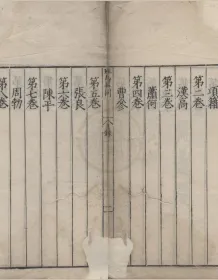 項籍
第二卷
漢高
第三卷
蕭何
第四卷
曹參
目錄
第五卷
張良
第六卷
陳平
第七卷
周勃
第八卷